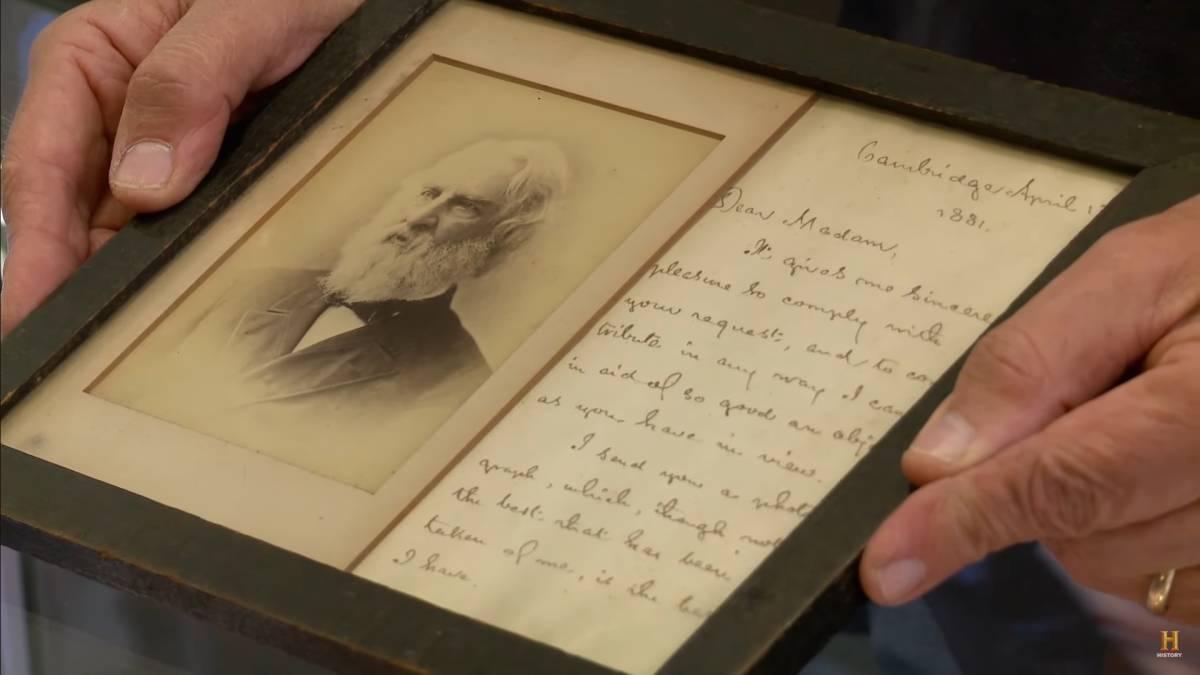 Cambridge April 1
1881.
Dear Madam,
It gives me sincere
pleasure to comply with
your request, and to con
tribute in any way I can
in aid of so good an obj
as you have in view.
I send you a photo
graph, which, though not
the best that has been
taken of me, is the bes
I have.
H
HISTORY